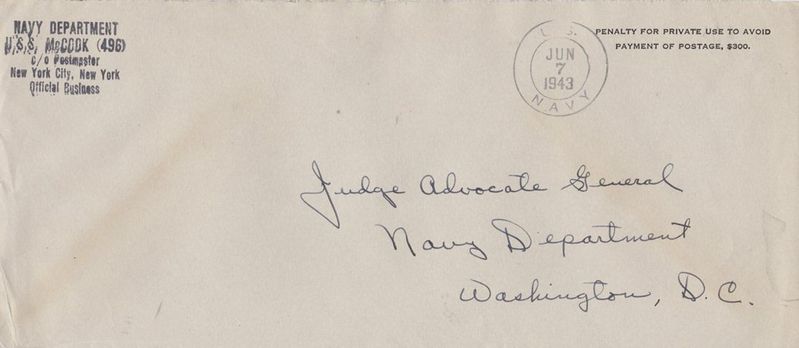 NAVY DEPARTMENT
U.S.S. McCOOK (496)
c/o Postmaster
New York City, New York
Official Business
U.S.
JUN
7
1943
NAVY
PENALTY FOR PRIVATE USE TO AVOID
PAYMENT OF POSTAGE, $300.
Judge Advocate General
Navy Department
Washington, D.C.